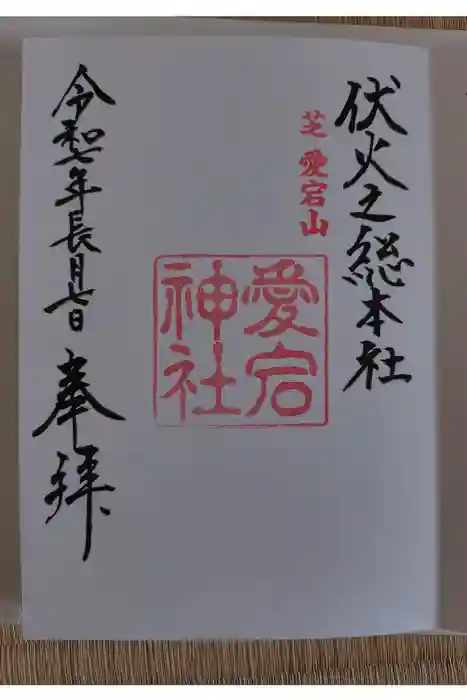 伏火之総本社
芝 愛宕山
愛宕
神社
令和七年長月七日
奉拝